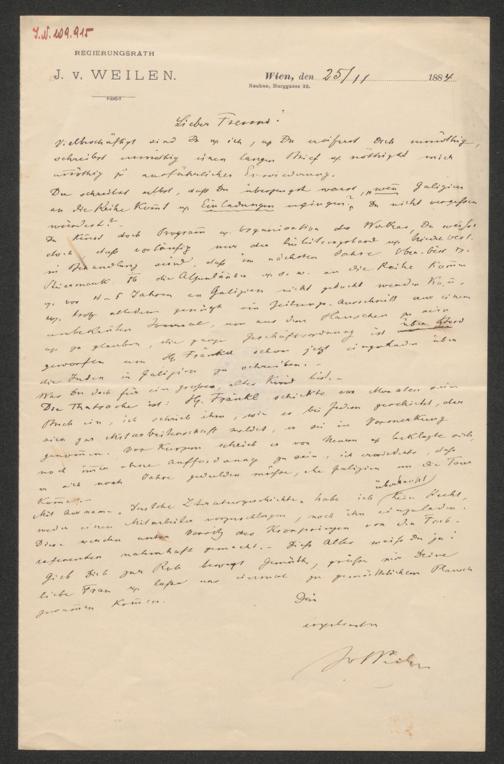 I.N. 109.915
REGIERUNGSRATH
J. v. WEILEN.
Wien, den 25/11 1884
Neubau, Burggasse 22.
Lieber Freund!
Vielbeschäftigt sind Du u. ich, u. Du
schreibst einen langen Brief u. nöthigst mich
zu ausführlicher Erwiederung.
Du schreibst selbst, daß Du überzeugt warst, wenn Galizien
an die Reihe kömt u. Einladungen ergingen, Du nicht vergessen
würdest?
Du kennst doch Programm u. Organisation des Werkes, Du weißt
doch, daß vorläufig nur der u. Niederöst.
in Behandlung sind, daß im nächsten Jahre Oberöst. u.
Steiermark, die Alpenländer u.s.w. an die Reihe kommen
u. vor 4-5 Jahren an Galizien nicht gedacht werden kann,
u. trotz alledem genügt ein Zeitungs-Ausschnitt aus einem
unbekannten Journal, um aus dem Häuschen zu sein
u. zu glauben, die ganze Geschäftsordnung ist über Bord
geworfen und H. Fränkel schon jetzt eingeladen über
die Juden in Galizien zu schreiben.
Was bist doch für ein großes, altes Kind bist.
Die Thatsache ist: H. Fränkl schickte vor Monaten sein
Buch ein, ich schrieb ihm, wie es bei Jedem geschieht, der
sich zur Mitarbeiterschaft meldet, er sei in Vormerkung
genommen. Vor Kurzem schrieb er von Neuem u. beklagte sich,
noch immer ohne Aufforderung zu sein, ich erwiederte, daß
er sich noch Jahre gedulden müsse, ehe Galizien an die Tour
komme.
Mit Ausnahme Deutsche Literaturgeschichte habe ich überhaupt kein Recht,
weder einen Mitarbeiter vorzuschlagen, noch ihn einzuladen.
Diese werden unter Vorsitz des Kronprinzen von den Fach-
referenten namhaft gemacht. Dieß Alles weißt Du ja!
Gieb Dich zur Ruh bewegt Gemüth, grüße mir Deine
liebe Frau u. laßt uns einmal zu gemüthlichem Plausch
zusammen kommen.
Dein
ergebenster
JvWeilen